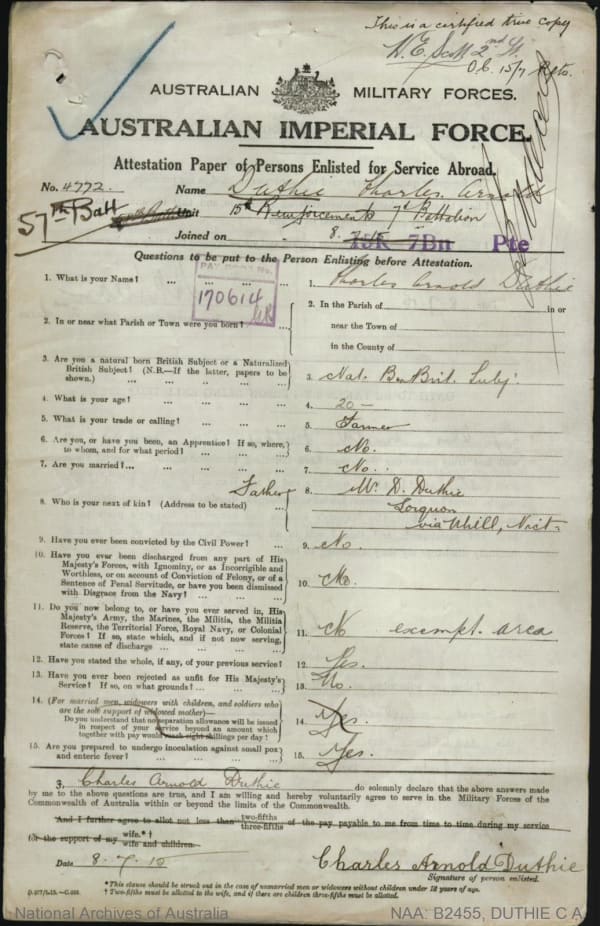 This is a certified true copy
W. E. Scott 2nd Lt.
O.C. 15/7 Rfts.
AUSTRALIAN MILITARY FORCES.
AUSTRALIAN IMPERIAL FORCE.
Attestation Paper of Persons Enlisted for Service Abroad.
No. 4772. Name Duthie Charles Arnold
57th Batt Unit 15th Reinforcements 7th Battalion
Joined on 8.7.15 15R 7Bn Pte
Questions to be put to the Person Enlisting before Attestation.
PAY BOOK No.
170614
1. What is your Name? ... ... ... 1. Charles Arnold Duthie
2. In or near what Parish or Town were you born? ... 2. In the Parish of in or
near the Town of
in the County of
3. Are you a natural born British Subject or a Naturalized
British Subject? (N.B.—If the latter, papers to be
shown.) 3. Nat. Bn Brit. Subj.
4. What is your age? 4. 20 —
5. What is your trade or calling? 5. Farmer
6. Are you, or have you been, an Apprentice? If so, where,
to whom, and for what period? 6. No.
7. Are you married? 7. No.
8. Who is your next of kin? (Address to be stated) Father 8. Mr. D. Duthie
Lorquon
via Nhill, Vict.
9. Have you ever been convicted by the Civil Power? 9. No.
10. Have you ever been discharged from any part of His
Majesty's Forces, with Ignominy, or as Incorrigible and
Worthless, or on account of Conviction of Felony, or of a
Sentence of Penal Servitude, or have you been dismissed
with Disgrace from the Navy? 10. No.
11. Do you now belong to, or have you ever served in, His
Majesty's Army, the Marines, the Militia, the Militia
Reserve, the Territorial Force, Royal Navy, or Colonial
Forces? If so, state which, and if not now serving,
state cause of discharge 11. No exempt. area
12. Have you stated the whole, if any, of your previous service? 12. Yes.
13. Have you ever been rejected as unfit for His Majesty's
Service? If so, on what grounds? 13. No.
14. (For married men, widowers with children, and soldiers who
are the sole support of widowed mother)—
Do you understand that no separation allowance will be issued
in respect of your service beyond an amount which
together with pay would reach eight shillings per day? 14. Yes.
15. Are you prepared to undergo inoculation against small pox
and enteric fever? 15. Yes.
I, Charles Arnold Duthie do solemnly declare that the above answers made
by me to the above questions are true, and I am willing and hereby voluntarily agree to serve in the Military Forces of the
Commonwealth of Australia within or beyond the limits of the Commonwealth.
And I further agree to allot not less than two-fifths three-fifths of the pay payable to me from time to time during my service
for the support of my wife.*† wife and children.
Date 8.7.15 Charles Arnold Duthie
Signature of person enlisted.
*This clause should be struck out in the case of unmarried men or widowers without children under 18 years of age.
† Two-fifths must be allotted to the wife, and if there are children three-fifths must be allotted.
National Archives of Australia NAA: B2455, DUTHIE C A